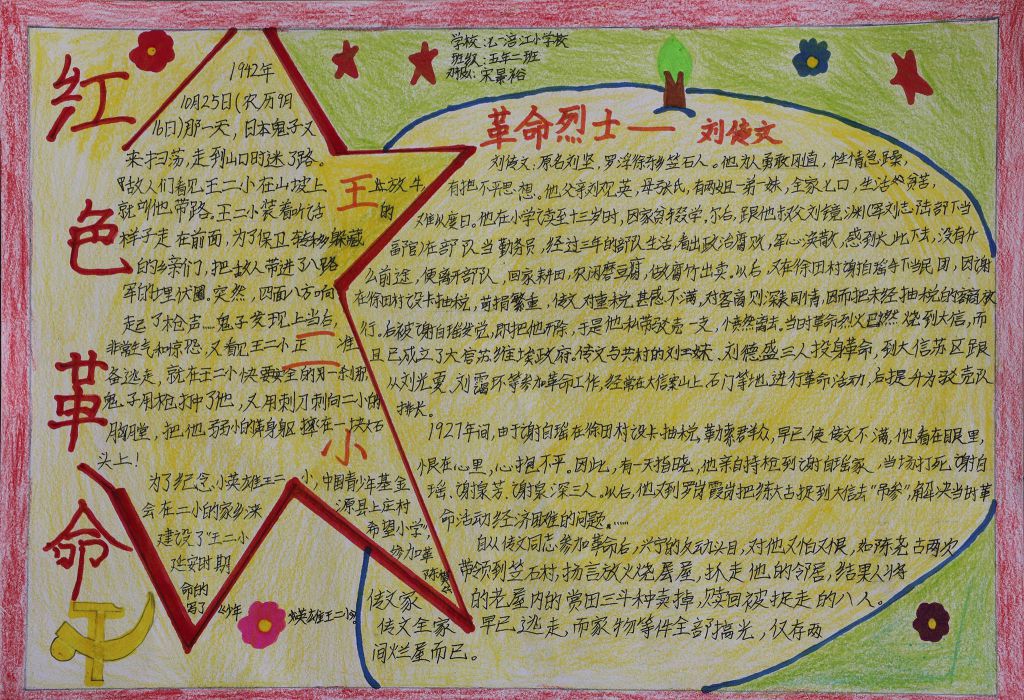 红色革命
学校:七一涪江小学校
班级:五年二班
宋景裕
1942年
10月25日(农历9月
16日)那一天,日本鬼子又
来扫荡,走到山口时迷了路。
敌人们看见王二小在山坡上
放牛,
就叫他带路。王二小装着听话
的
样子走在前面,为了保卫转移躲藏
的乡亲们,把敌人带进了八路
军的埋伏圈。突然,四面八方响
起了枪声……鬼子发现上当后,
非常生气和惊恐,又看见王二小正准
备逃走,就在王二小快要安全的那一刹那,
鬼子用枪打中了他,又用刺刀刺向二小的
胸膛,把他弱小的身躯摔在一块大石
头上!
为了纪念小英雄王二小,中国青少年基金
会在二小的家乡涞源县上庄村
建设了“王二小希望小学”,
延安时期参加革
命的陈
写了《少年英雄王二小》
王二小
革命烈士——刘俊文
刘俊文,原名刘坚,罗浮徐乡笠石人。他为人勇敢刚直,性情急躁,
有抱不平思想。他父亲刘观英,母张氏,有两姐一弟一妹,全家七口,生活贫苦,
难以度日。他在小学读至十三岁时,因家贫辍学。尔后,跟他叔父刘镜渊(军刘志陆部下当
副官)在部队当勤务员,经过三年的部队生活,看出政治腐败,军心涣散,感到长此下去,没有什
么前途,便离开部队,回家耕田,农闲磨豆腐,做腐竹出卖。以后,又在徐田村谢自瑶手下当民团,因谢
在徐田村设卡抽税,苛捐繁重,俊文对重税甚感不满,对客商则深表同情,因而把未经抽税的客商放
行。后被谢自瑶发觉,即把他开除,于是他私带驳壳一支,愤然离去。当时革命烈火已燃烧到大信,而
且已成立了大信苏维埃政府。俊文与共村的刘王妹、刘德盛三人投身革命,到大信苏区跟
从刘光夏、刘霜环等参加革命工作,经常在大信寨山上、石门等地,进行革命活动,后提升为驳壳队
排长。
1927年间,由于谢自瑶在徐田村设卡抽税,勒索群众,早已使俊文不满,他看在眼里,
恨在心里,心抱不平。因此,有一天拍晓,他亲自持枪到谢自瑶家,当场打死谢自
瑶、谢泉芳、谢泉深三人。以后,他又到罗岗霞岗把练大古捉到大信去“吊参”,解决当时革
命活动经济困难的问题。……
自从俊文同志参加革命后,兴宁的反动头目,对他又怕又恨,如陈尧古两次
带领到笠石村,扬言放火烧层屋,扒走他的邻居,结果人将
俊文家的老屋内的尝田三斗种卖掉,赎回被捉走的八人。
俊文全家早已逃走,而家物等件全部搞光,仅存两
间烂屋而已。